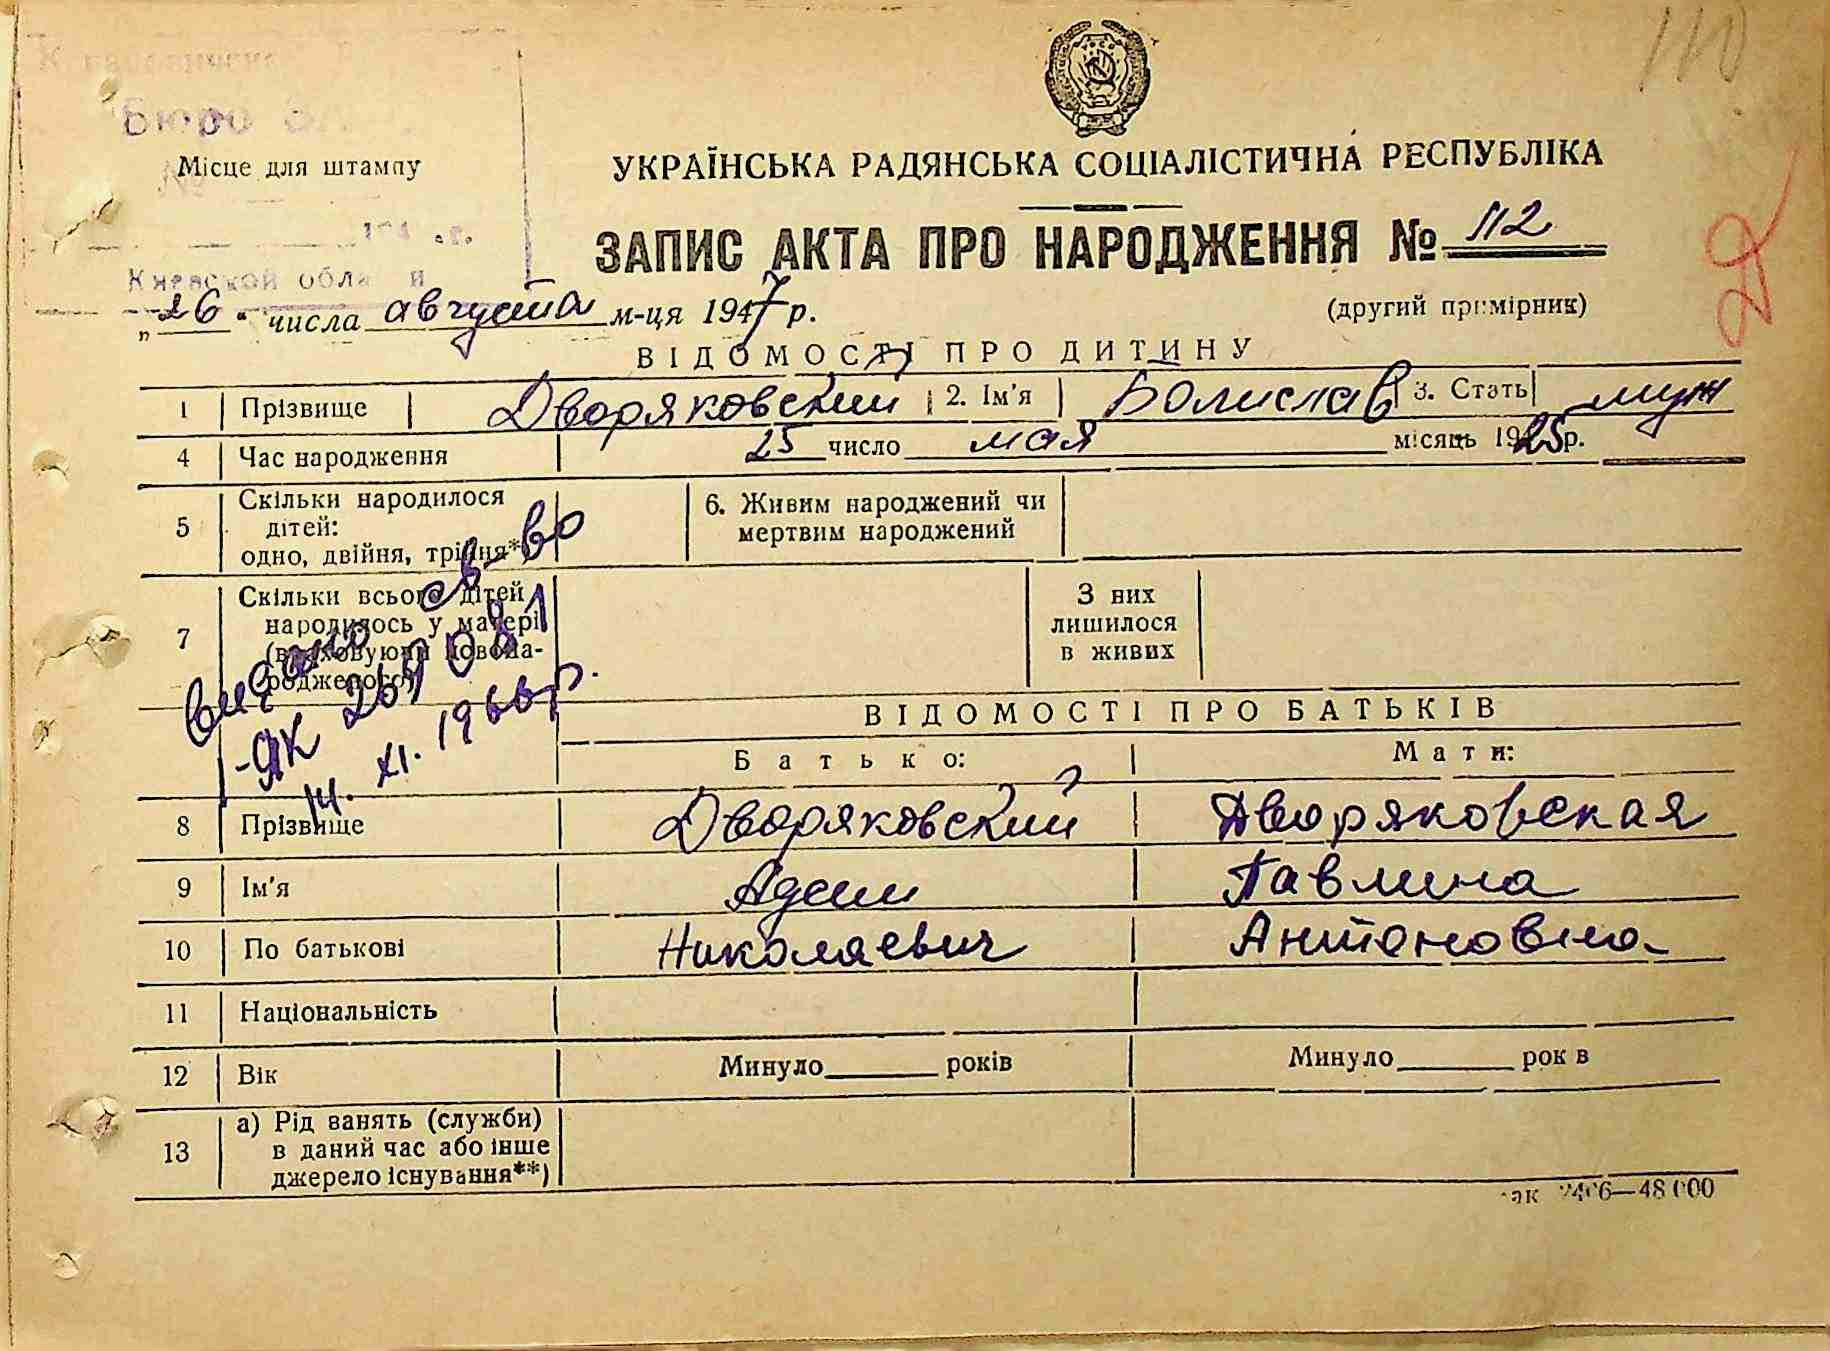 110
Бюро
Місце для штампу
№
Киевской обла й
УКРАЇНСЬКА РАДЯНСЬКА СОЦІАЛІСТИЧНА РЕСПУБЛІКА
ЗАПИС АКТА ПРО НАРОДЖЕННЯ № 112
„26“ числа августа м-ця 1947 р.
(другий примірник)
Д
ВІДОМОСТІ ПРО ДИТИНУ
1 Прізвище Дворяковский 2. Ім'я Болислав 3. Стать муж
4 Час народження 25 число мая місяць 1925 р.
5 Скільки народилося дітей: одно, двійня, трійня*) 6. Живим народжений чи мертвим народжений
7 Скільки всього дітей народилось у матері (враховуючи новона-родженого) З них лишилося в живих
видано св-во
-ЯК 269081
14. XI. 1966 р.
ВІДОМОСТІ ПРО БАТЬКІВ
Батько: Мати:
8 Прізвище Дворяковский Дворяковская
9 Ім'я Адам Павлина
10 По батькові Николаевич Антоновна
11 Національність
12 Вік Минуло років Минуло рок в
13 а) Рід занять (служби) в даний час або інше джерело існування**)
ак 2406—48 000